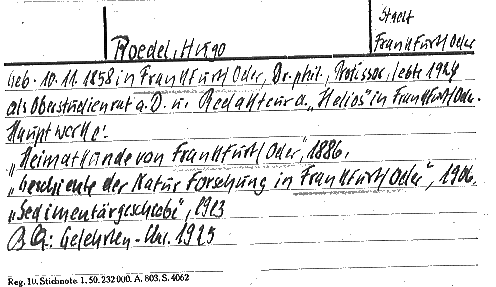 Stadt
Roedel, Hugo
Frankfurt/Oder
Geb. 10.11.1858 in Frankfurt/Oder, Dr. phil., Professor, lebte 1924
als Oberstudienrat a.D. u. Redakteur d. „Helios" in Frankfurt/Oder.
Hauptwerke:
„Heimatkunde von Frankfurt/Oder", 1886.
„Geschichte der Naturforschung in Frankfurt/Oder", 1906.
„Sedimentärgeschiebe", 1913
BQ: Gelehrten-Kal. 1925
Reg. 10. Stichnote 1. 50. 232000. A. 803. S. 4062